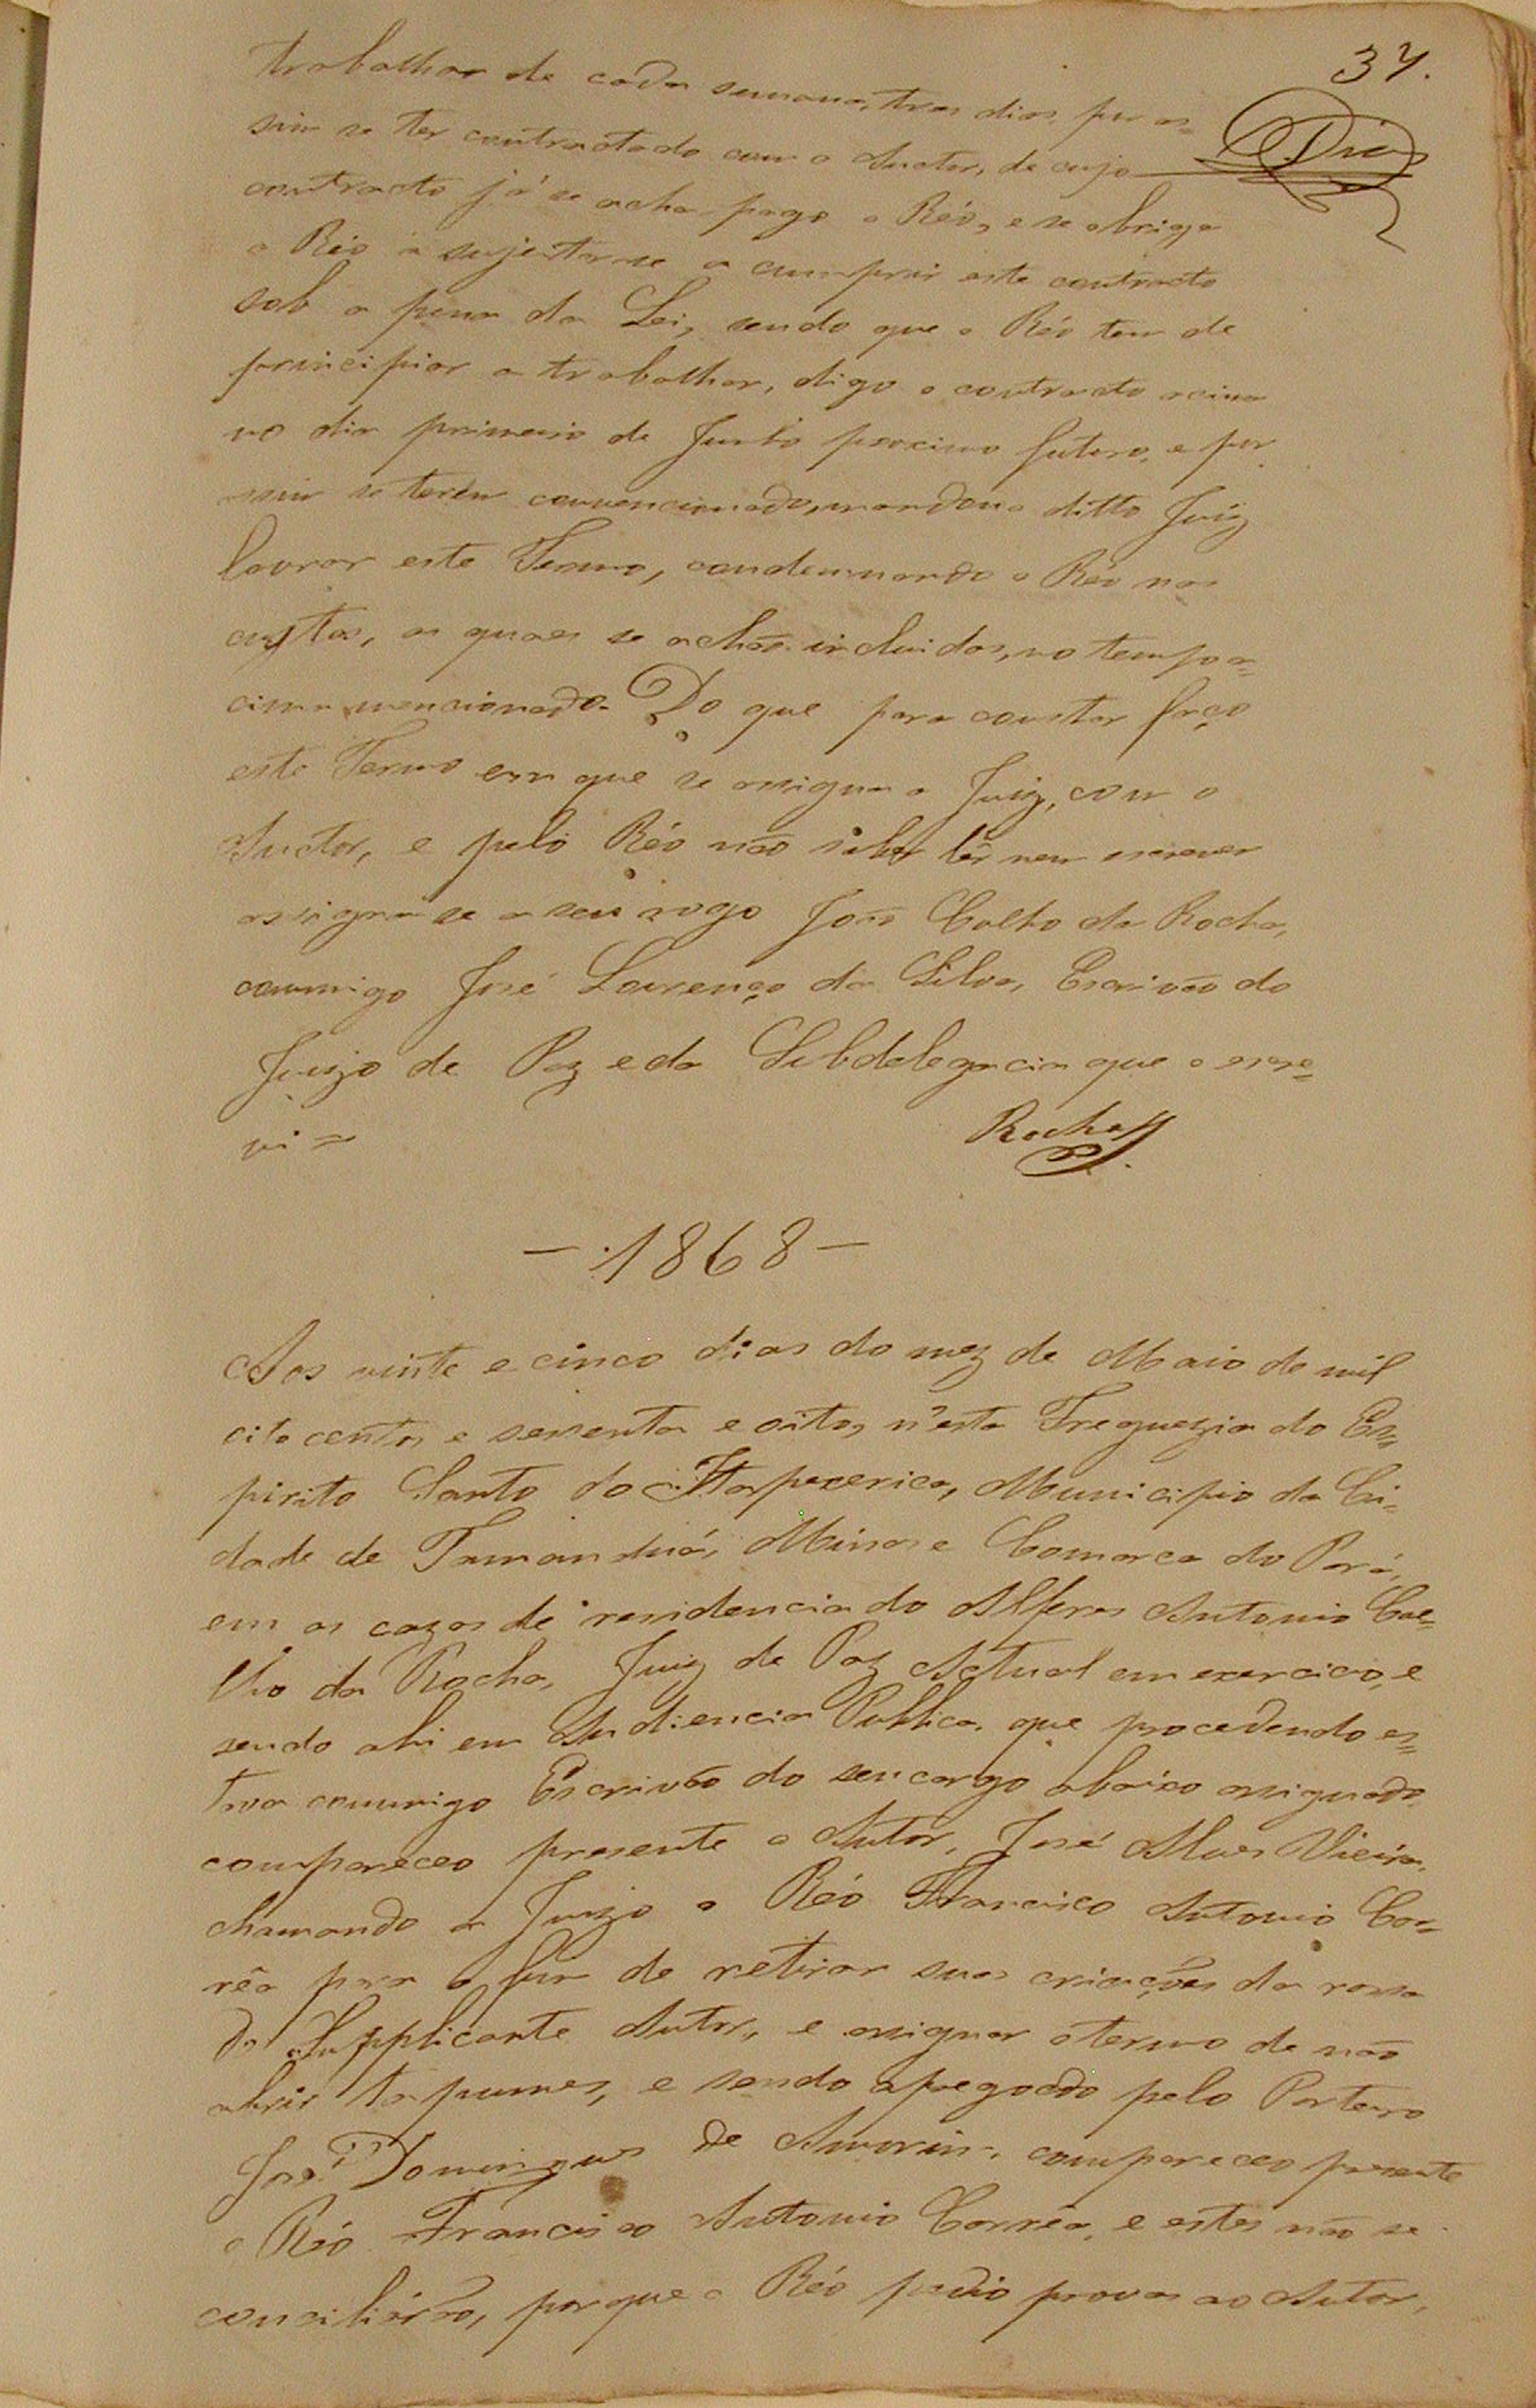 37.
Dias
trabalhar de cada semana, tres dias, por as=
sim se ter contractado com o Auctor, de cujo
contracto já se acha pago o Réo, e se obriga
o Réo a sujeitar-se a cumprir este contracto
sob a pena da Lei, sendo que o Réo tem de
principiar a trabalhar, digo o contracto acima
no dia primeiro de Junho proximo futuro, e por
assim se terem convencionado, mandou o ditto Juiz
lavrar este Termo, condemnando o Réo nas
custas, as quaes se achão incluidas, no tempo a=
cima mencionado. Do que para constar faço
este Termo em que se assigna o Juiz, com o
Auctor, e pelo Réo não saber lêr nem escrever
assigna-se a seu rogo João Coelho da Rocha,
commigo José Lourenço da Silva, Escrivão do
Juizo de Paz e da Subdelegacia que o escre=
vi =
Rocha
— 1868 —
Aos vinte e cinco dias do mez de Maio de mil
oito centos e sessenta e oito, n'esta Freguezia do Es=
pirito Santo do Itapecerica, Municipio da Ci=
dade de Tamanduá, Minas e Comarca do Pará,
em as cazas de residencia do Alferes Antonio Coe=
lho da Rocha, Juiz de Paz Actual em exercicio, e
sendo ahi em Audiencia Publica, que procedendo es=
tava commigo Escrivão do seu cargo abaixo assignado,
compareceo presente o Autor, José Alves Vieira,
chamando a Juizo o Réo Francisco Antonio Cor=
rêa para o fim de retirar suas criações da rossa
do Supplicante Autor, e assignar o termo de não
abrir tapumes, e sendo apregoado pelo Porteiro
José Domingues de Amorim, compareceo presente
o Réo Francisco Antonio Corrêa, e estes não se
conciliárão, porque o Réo pedio provas ao Autor,